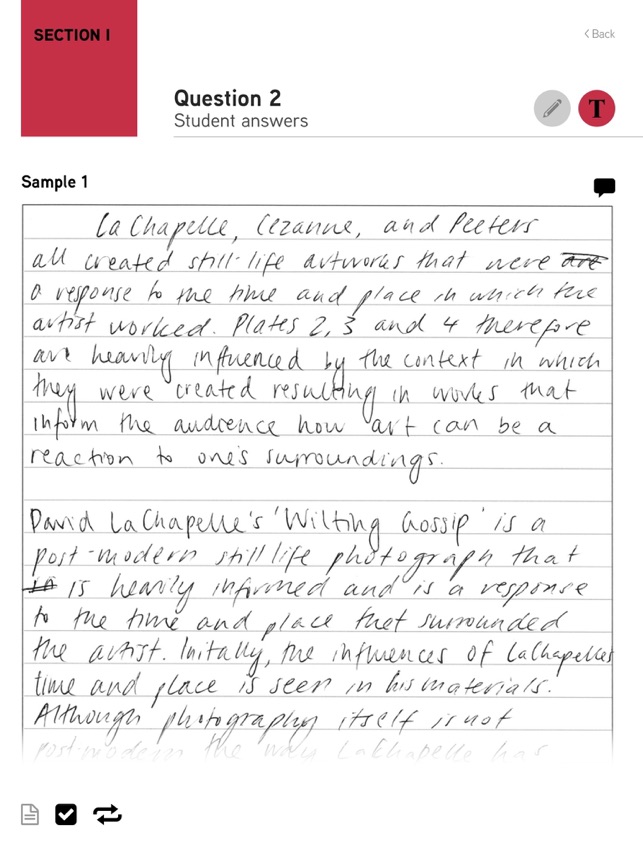 SECTION I
Back
Question 2
Student answers
T
Sample 1
LaChapelle, Cezanne, and Peeters
all created still-life artworks that were are
a response to the time and place in which the
artist worked. Plates 2, 3 and 4 therefore
are heavily influenced by the context in which
they were created resulting in works that
inform the audience how art can be a
reaction to one's surroundings.
David LaChapelle's 'Wilting Gossip' is a
post-modern still life photograph that
in is heavily informed and is a response
to the time and place that surrounded
the artist. Initally, the influences of LaChapelles
time and place is seen in his materials.
Although photography itself is not
post-modern the way LaChapelle has